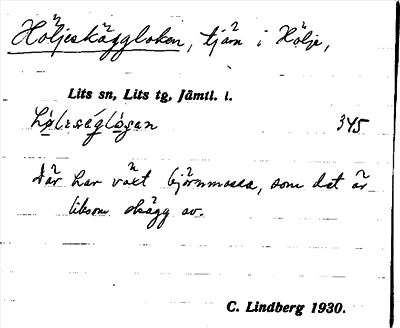 Höljeskäggloken, tjärn i Hölje,
Lits sn, Lits tg, Jämtl. l.
345
där har växt björnmossa, som det är
liksom skägg av.
C. Lindberg 1930.